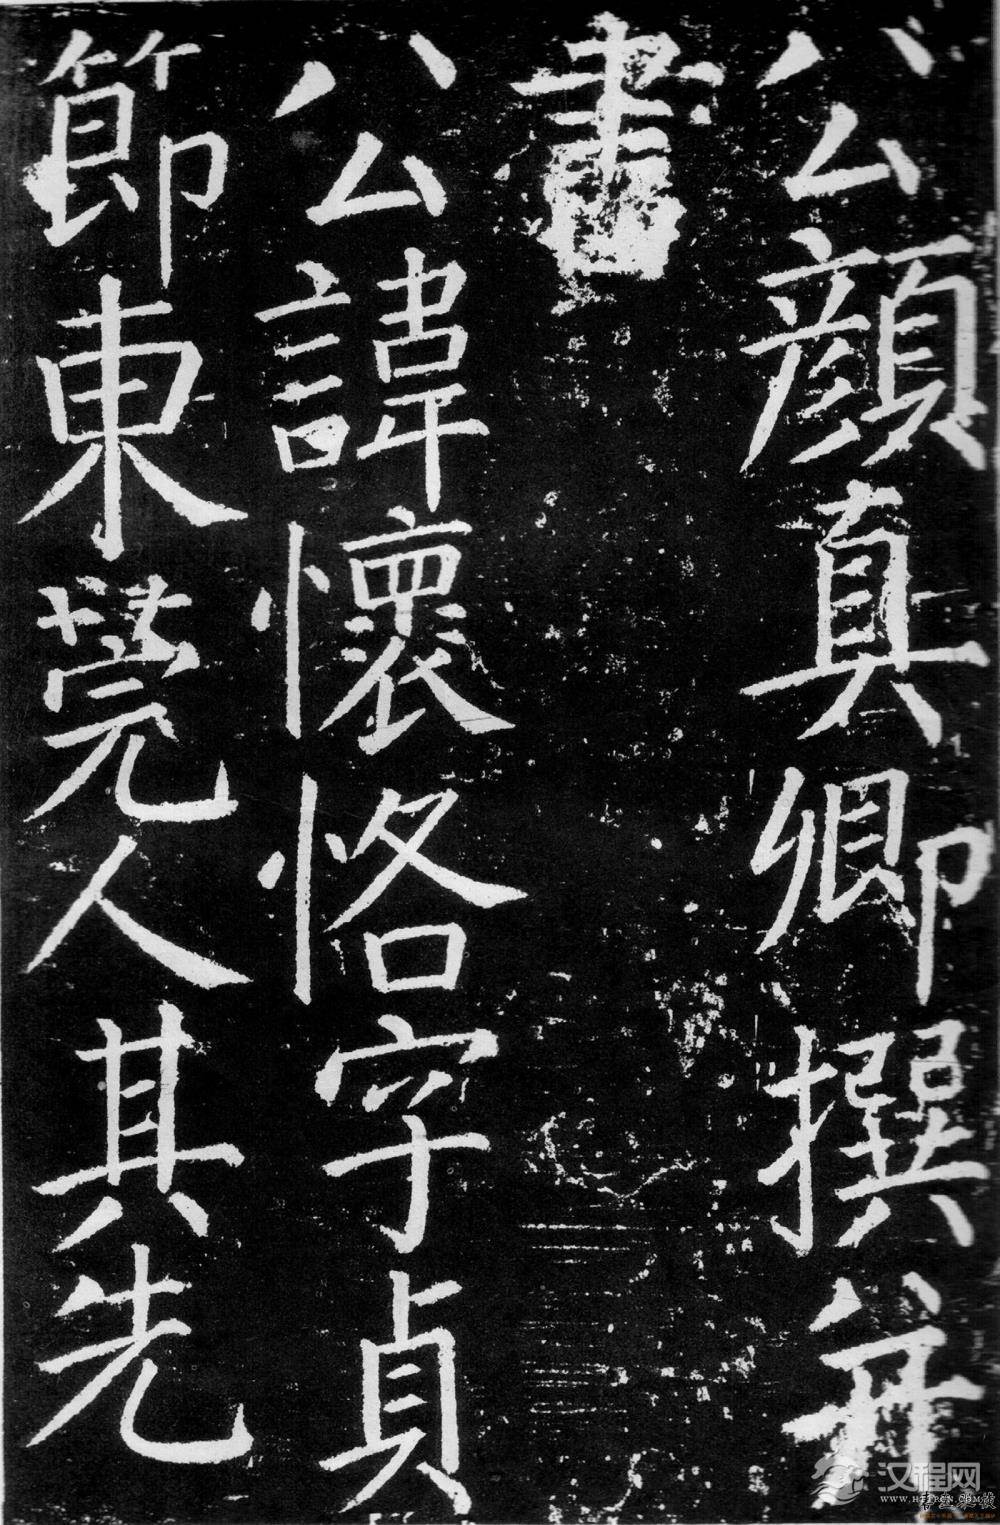 公顏真卿撰并
書
公諱懷恪字貞
節東莞人其先
汉程网
WWW.HTTPCN.COM